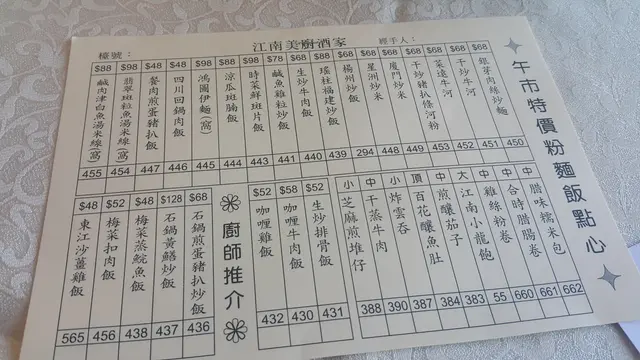 江南美廚酒家
檯號：
經手人：
午市特價粉麵飯點心
$68 銀芽肉絲炒麵 450
$68 干炒牛河 451
$68 菜遠牛河 452
$68 干炒豬扒條河粉 453
$68 廈門炒米 449
$68 星洲炒米 448
$68 楊州炒飯 294
$88 瑤柱福建炒飯 439
$68 生炒牛肉飯 440
$78 鹹魚雞粒炒飯 441
$98 時菜鮮斑片飯 442
$88 涼瓜斑腩飯 443
$98 鴻圖伊麵(窩) 444
$48 四川回鍋肉飯 445
$48 餐肉煎蛋豬扒飯 446
$98 翡翠斑粒魚湯米線(窩) 447
$88 鹹肉津白魚湯米線(窩) 454
455
中 腊味糯米包 662
中 合時腊腸卷 661
中 雞絲粉卷 660
大 江南小籠飽 55
中 煎釀茄子 383
頂 百花釀魚肚 384
小 炸雲吞 387
中 干蒸牛肉 390
小 芝麻煎堆仔 388
$52 生炒排骨飯 431
$58 咖喱牛肉飯 430
$52 咖喱雞飯 432
廚師推介
$68 石鍋煎蛋豬扒炒飯 436
$128 石鍋黃鱔炒飯 437
$48 梅菜蒸鯇魚飯 438
$52 梅菜扣肉飯 456
$48 東江沙薑雞飯 565